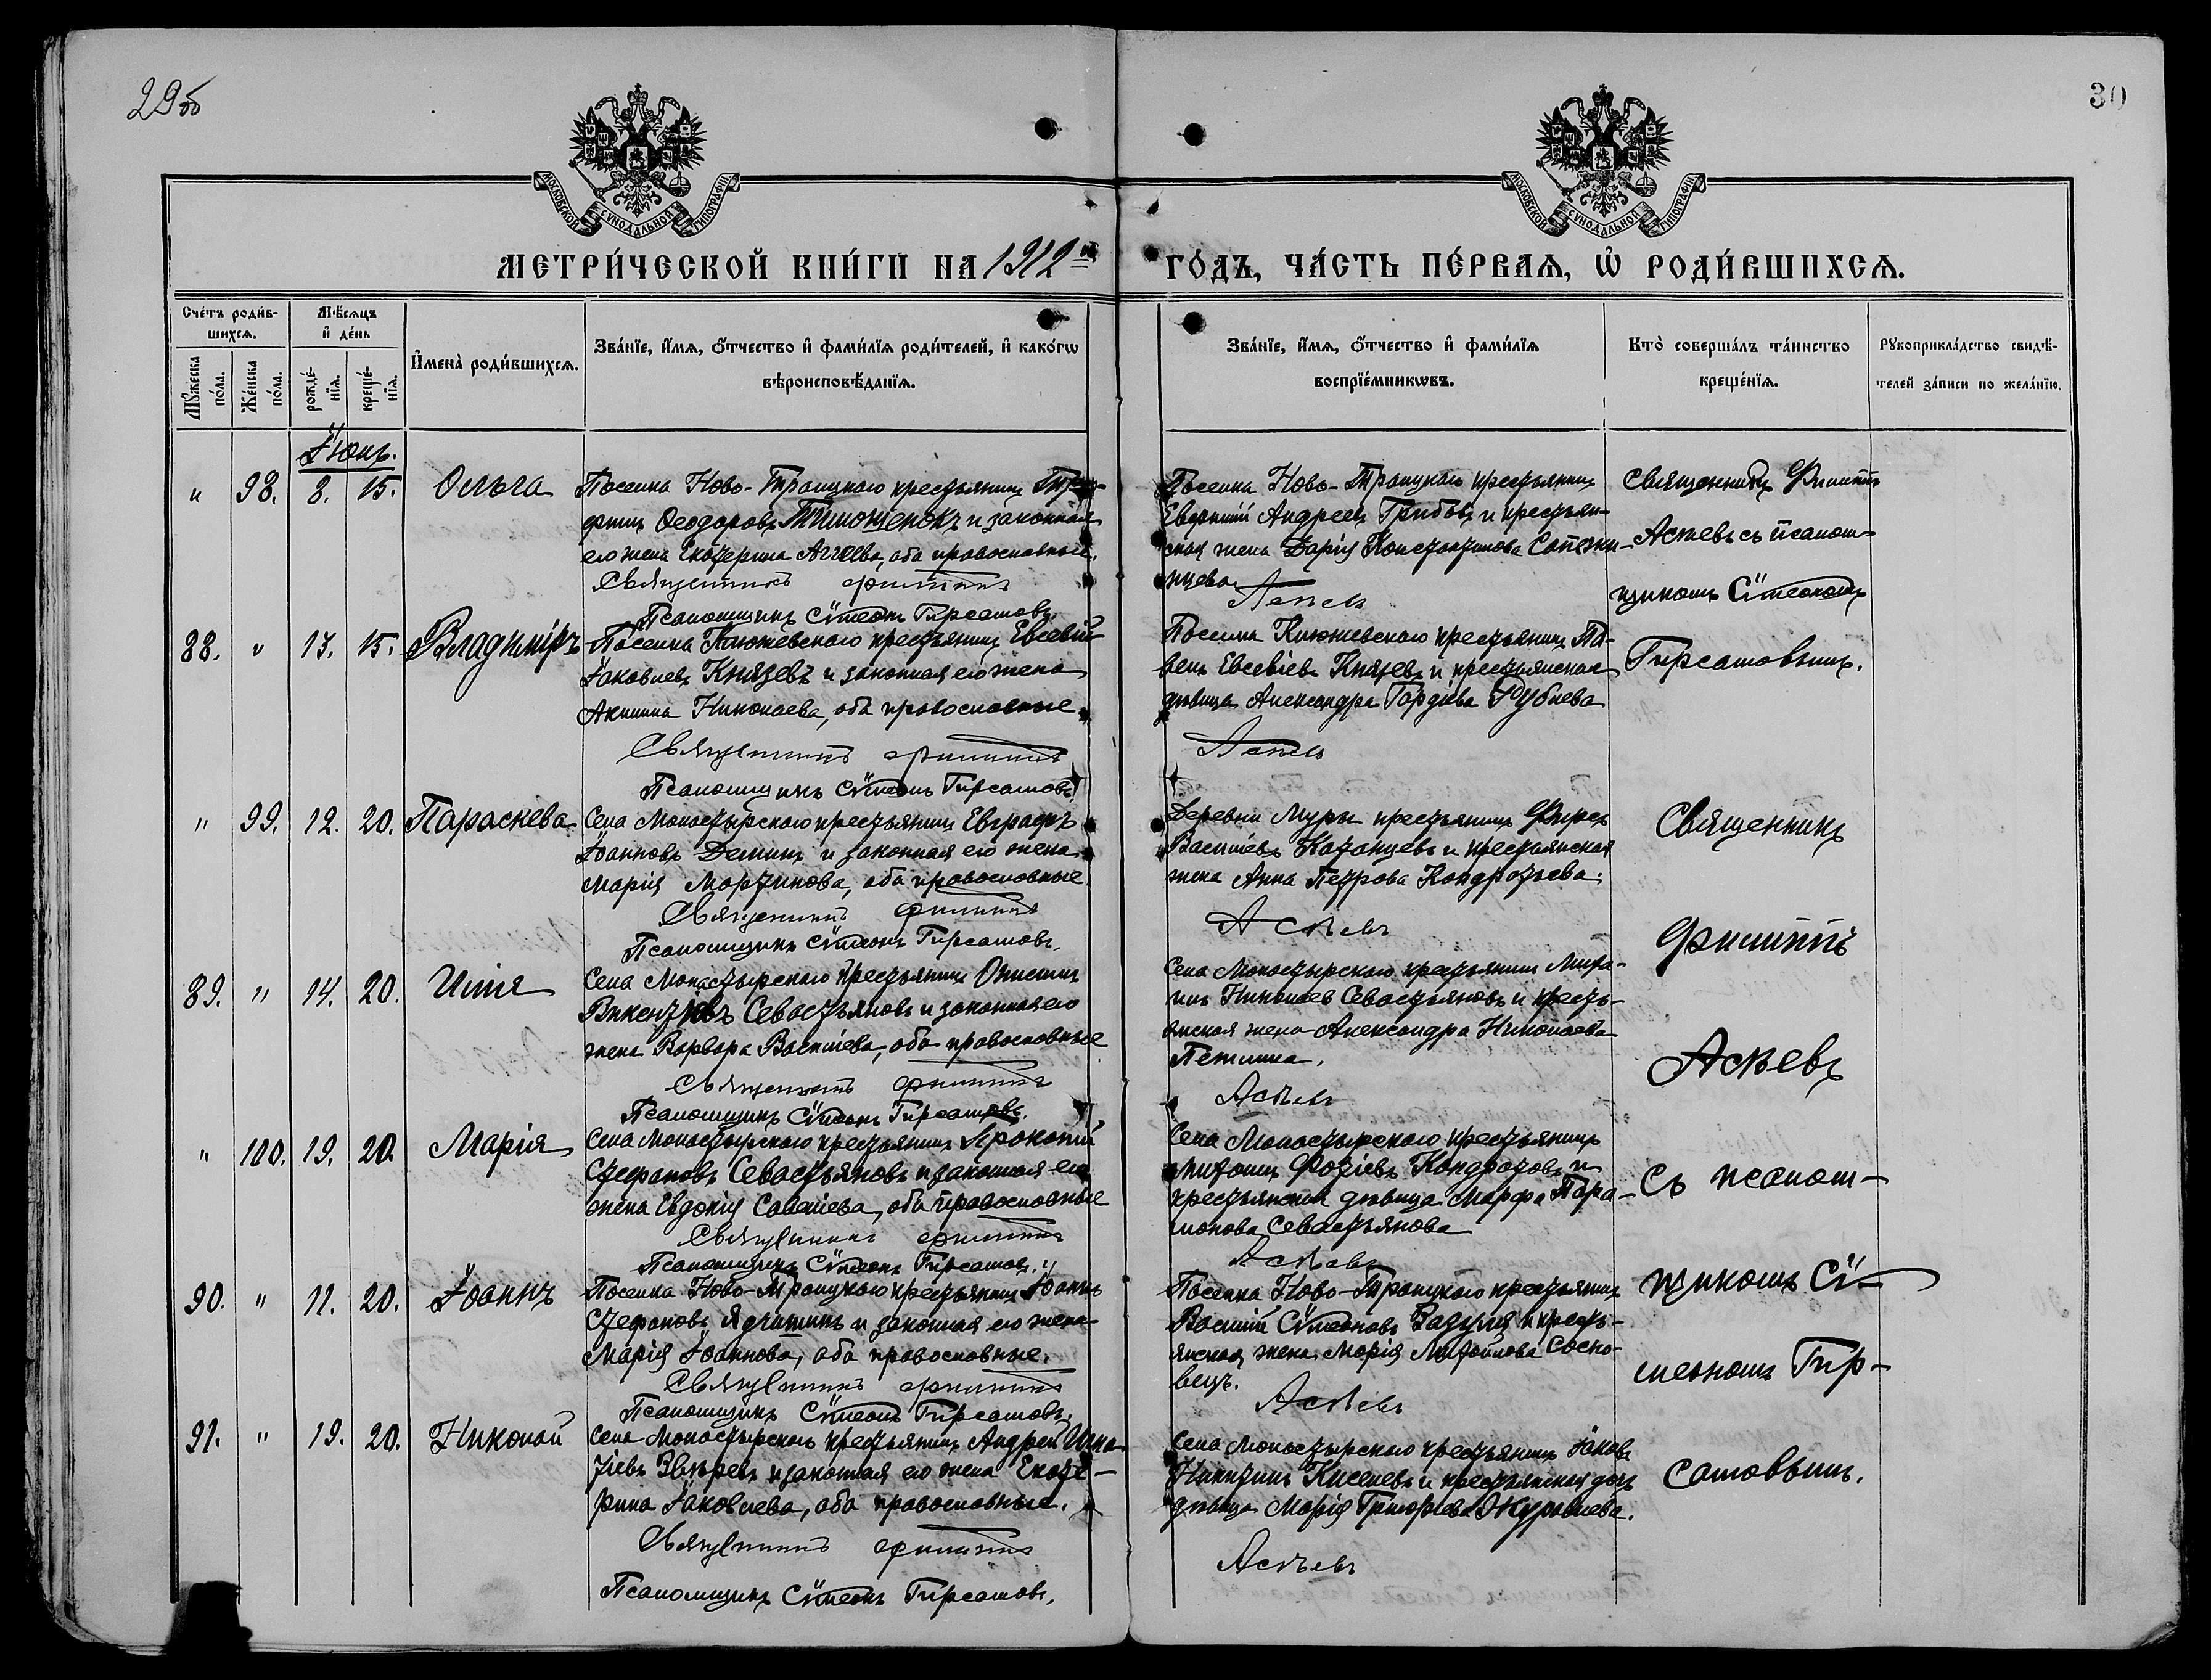 29об
30
МОСКОВСКОЙ СѴНОДАЛЬНОЙ ТИПОГРАФІИ
МОСКОВСКОЙ СѴНОДАЛЬНОЙ ТИПОГРАФІИ
МЕТРИ́ЧЕСКОЙ КНИ́ГИ НА 1912й ГО́ДЪ, ЧА́СТЬ ПЕ́РВАѦ, Ѡ҆ РОДИ́ВШИХСѦ.
Сче́тъ роди́в-
шихсѧ.
Мꙋ́жеска по́ла.
Же́нска по́ла.
Мѣ́сѧцъ и҆ де́нь
рожде́-нїѧ.
креще́-нїѧ.
И҆мена̀ роди́вшихсѧ.
Зва́нїе, и҆́мѧ, ѻ҆́тчество и҆ фами́лїѧ роди́телей, и҆ како́гѡ
вѣроисповѣ́данїѧ.
Зва́нїе, и҆́мѧ, ѻ҆́тчество и҆ фами́лїѧ
воспрїе́мникѡвъ.
Кто̀ соверша́лъ та́инство
креще́нїѧ.
Рꙋкоприкла́дство свидѣ́-
телей за́писи по жела́нїю.
Іюнь.
" 98. 8. 15. Ольга
Поселка Ново-Троицкаго крестьянинъ Три-
финъ Ѳеодоровъ Тимошенокъ и законная
его жена Екатерина Аггеева, оба православные.
Священникъ Филиппъ Асѣевъ
Псаломщикъ Сѵмеонъ Гирсамовъ.
Поселка Ново-Троицкаго крестьянинъ
Евфимій Андреевъ Грибовъ и крестьян-
ская жена Дарія Константинова Сапежи-
нцева.
Священникъ Филиппъ
Асѣевъ съ псалом-
щикомъ Сѵмеономъ
Гирсамовымъ.
88. " 13. 15. Владиміръ
Поселка Княжевскаго крестьянинъ Евсевій
Іаковлевъ Князевъ и законная его жена
Акилина Николаева, оба православные.
Священникъ Филиппъ Асѣевъ
Псаломщикъ Сѵмеонъ Гирсамовъ.
Поселка Княжевскаго крестьянинъ Па-
велъ Евсевіевъ Князевъ и крестьянская
дѣвица Александра Гордіева Рублева
" 99. 12. 20. Параскева
Села Монастырскаго крестьянинъ Евграфъ
Іоанновъ Деминъ и законная его жена
Марія Мартинова, оба православные.
Священникъ Филиппъ Асѣевъ
Псаломщикъ Сѵмеонъ Гирсамовъ.
Деревни Муры крестьянинъ Фирсъ
Василіевъ Казанцевъ и крестьянская
жена Анна Петрова Кондратьева.
Священникъ
Филиппъ
Асѣевъ
съ псалом-
щикомъ Сѵ-
меономъ Гир-
самовымъ.
89. " 14. 20. Илія
Села Монастырскаго крестьянинъ Онисимъ
Викентіевъ Севастьяновъ и законная его
жена Варвара Василіева, оба православные
Священникъ Филиппъ Асѣевъ
Псаломщикъ Сѵмеонъ Гирсамовъ.
Села Монастырскаго крестьянинъ
Николаевъ Севастьяновъ и кресть-
янская жена Александра Николаева
" 100. 19. 20. Марія
Села Монастырскаго крестьянинъ Прокопій
Стефановъ Севастьяновъ и законная его
жена Евдокія Савеліева, оба православные
Священникъ Филиппъ Асѣевъ
Псаломщикъ Сѵмеонъ Гирсамовъ.
Села Монастырскаго крестьянинъ
Фотіевъ Кондратовъ и
крестьянская дѣвица Марфа Пара-
монова Севастьянова
90. " 11. 20. Іоаннъ
Поселка Ново-Троицкаго крестьянинъ Іоаннъ
Стефановъ Ядчишинъ и законная его жена
Марія Іоаннова, оба православные.
Священникъ Филиппъ Асѣевъ
Псаломщикъ Сѵмеонъ Гирсамовъ.
Поселка Ново-Троицкаго крестьянинъ
Василій Сѵмеоновъ Вадуня и кресть-
янская жена Марія Сосно-
вецъ.
91. " 19. 20. Николай
Села Монастырскаго крестьянинъ Андрей Игна-
тіевъ Звѣревъ и законная его жена Екате-
рина Іаковлева, оба православные.
Священникъ Филиппъ Асѣевъ
Псаломщикъ Сѵмеонъ Гирсамовъ.
Села Монастырскаго крестьянинъ Іаковъ
Никитинъ Киселевъ и крестьянская
дѣвица Марія Григоріева Журавлева.